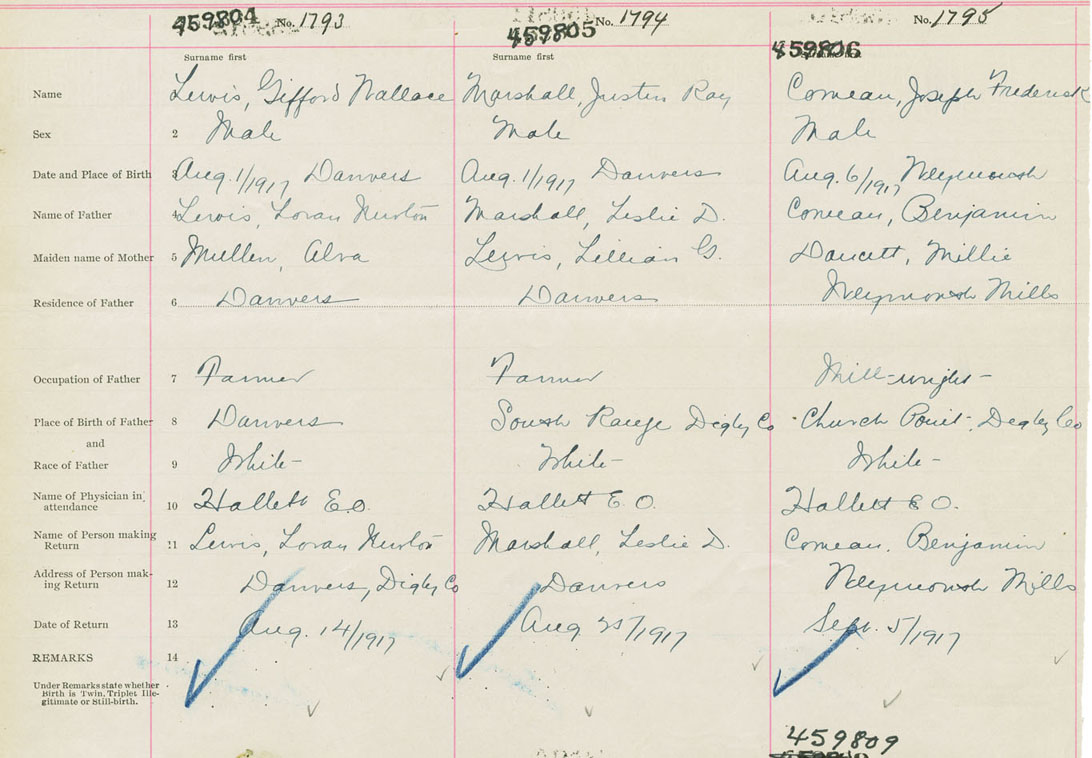 459804 No. 1793 459805 No. 1794 459806 No. 1795
Surname first Surname first Surname first
Name Lewis, Gifford Wallace Marshall, Justin Ray Comeau, Joseph Frederick
Sex 2 Male Male Male
Date and Place of Birth 3 Aug. 1/1917 Danvers Aug. 1/1917 Danvers Aug. 6/1917 Weymouth
Name of Father 4 Lewis, Loran Newton Marshall, Leslie D. Comeau, Benjamin
Maiden name of Mother 5 Mullen, Alva Lewis, Lillian G. Doucett, Millie
Residence of Father 6 Danvers Danvers Weymouth Mills
Occupation of Father 7 Farmer Farmer Mill-wright
Place of Birth of Father 8 Danvers South Range Digby Co Church Point, Digby Co
and
Race of Father 9 White White White
Name of Physician in attendance 10 Hallett E.O. Hallett E.O. Hallett E O.
Name of Person making Return 11 Lewis, Loran Newton Marshall, Leslie D. Comeau, Benjamin
Address of Person mak-ing Return 12 Danvers, Digby Co Danvers Weymouth Mills
Date of Return 13 Aug. 14/1917 Aug 25/1917 Sept. 5/1917
REMARKS 14
Under Remarks state whether
Birth is Twin, Triplet Ille-
gitimate or Still-birth.
459809